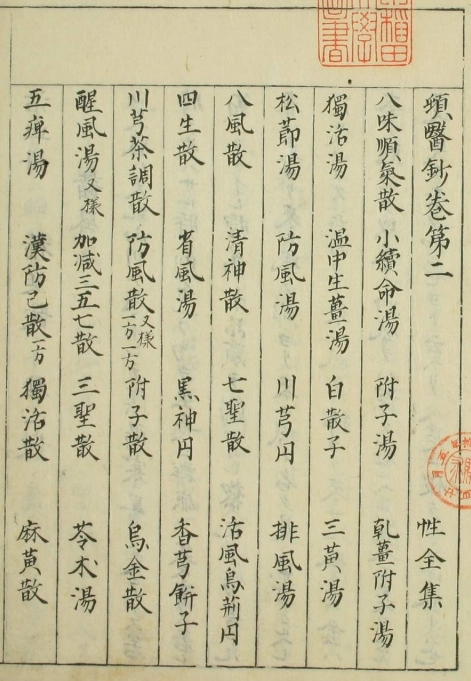 頓醫鈔卷第二 性全集
八味順氣散 小續命湯 附子湯 乹薑附子湯
獨活湯 温中生薑湯 白散子 三黃湯
松節湯 防風湯 川芎円 排風湯
八風散 清神散 七聖散 活風烏荊円
四生散 省風湯 黒神円 香芎餅子
川芎茶調散 防風散 又様 一方一方 附子散 烏金散
醒風湯 又様 加減三五七散 三聖散 苓朮湯
五痺湯 漢防己散 一方 獨活散 麻黃散